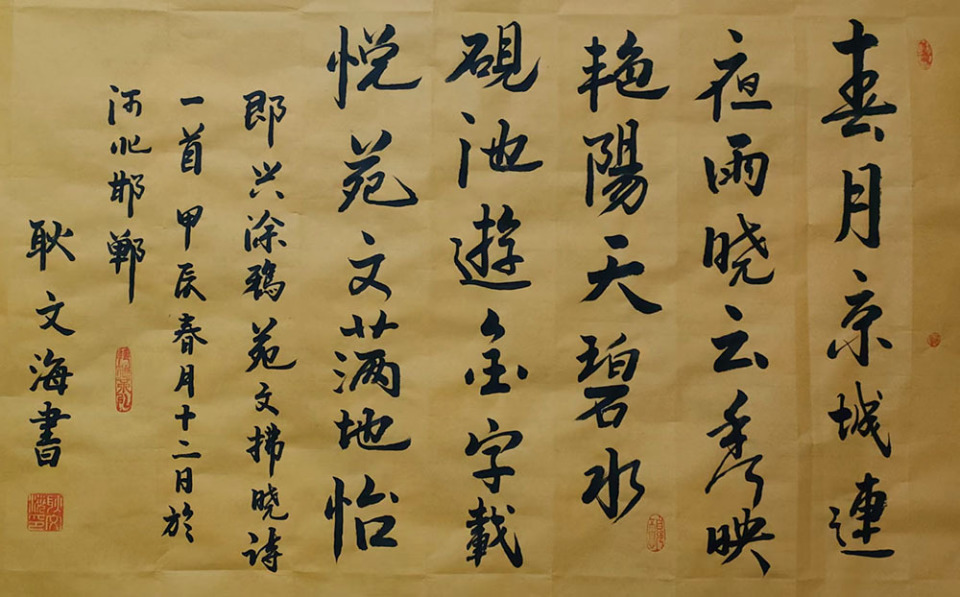 春月京城連
夜雨晓云秀映
艳陽天碧水
硯池遊金字載
悦苑文满地怡
即兴涂鸦苑文拂晓诗
一首 甲辰春月十二日於
河北邯郸
耿文海書